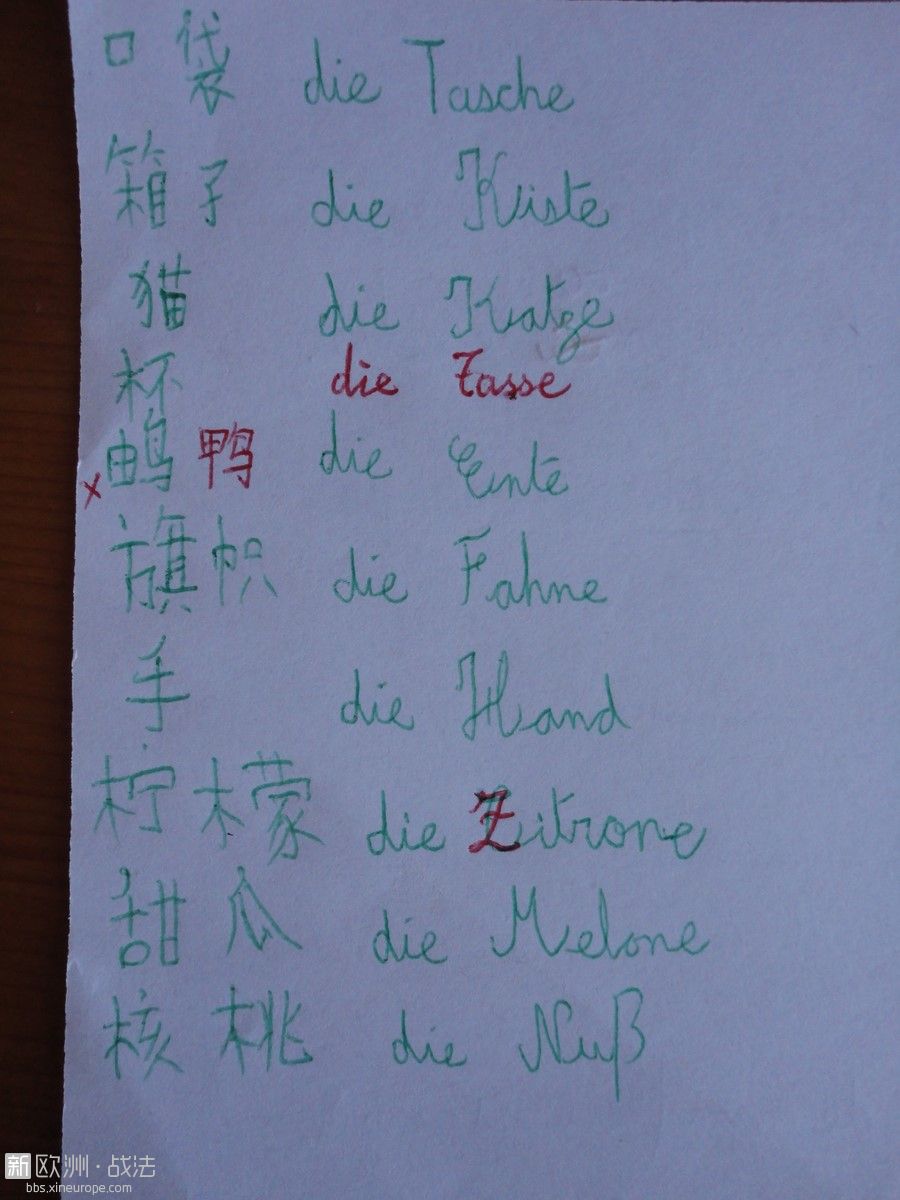 口袋 die Tasche
箱子 die Kiste
猫 die Katze
杯 die Tasse
x 鸭 die Ente
旗帜 die Fahne
手 die Hand
柠檬 die Zitrone
甜瓜 die Melone
核桃 die Nuß
新欧洲·战法
bbs.xineurope.com